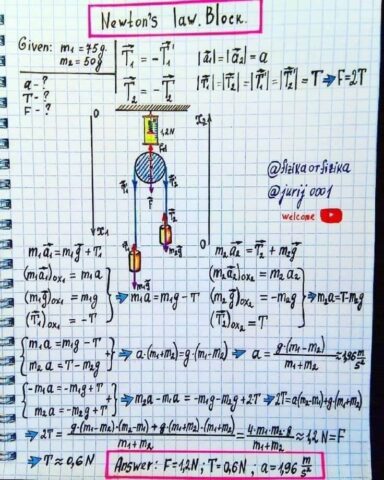 Newton's law. Block.
Given: m₁ = 75g.
m₂ = 50g
a - ?
T - ?
F - ?
T⃗₁ = -T⃗₁'
T⃗₂ = -T⃗₂'
|a⃗₁| = |a⃗₂| = a
|T⃗₁| = |T⃗₂| = |T⃗₁'| = |T⃗₂'| = T ⇒ F = 2T
0
x₁
1,2N
F⃗
T⃗₁'
T⃗₂'
T⃗₂
m₂g⃗
m₁g⃗
x₂
0
@fizikaotfizika
@jurij0001
welcome
m₁a⃗₁ = m₁g⃗ + T⃗₁
(m₁a⃗₁)ox₁ = m₁a
(m₁g⃗)ox₁ = m₁g
(T⃗₁)ox₁ = -T
⇒ m₁a = m₁g - T
m₂a⃗₂ = T⃗₂ + m₂g⃗
(m₂a⃗₂)ox₂ = m₂a₂
(m₂g⃗)ox₂ = -m₂g
(T⃗₂)ox₂ = T
⇒ m₂a = T - m₂g
{m₁a = m₁g - T
m₂a = T - m₂g} ⇒ a·(m₁+m₂) = g·(m₁-m₂) ⇒ a = g·(m₁-m₂)/(m₁+m₂) ≈ 1,96 m/s²
{-m₁a = -m₁g + T
m₂a = -m₂g + T} ⇒ m₂a - m₁a = -m₁g - m₂g + 2T ⇒ 2T = a(m₂-m₁) + g·(m₁+m₂)
⇒ 2T = (g·(m₁-m₂)·(m₂-m₁) + g·(m₁+m₂)·(m₁+m₂))/(m₁+m₂) = 4·m₁·m₂·g/(m₁+m₂) ≈ 1,2N = F
⇒ T ≈ 0,6 N
Answer: F = 1,2N; T = 0,6N; a = 1,96 m/s²